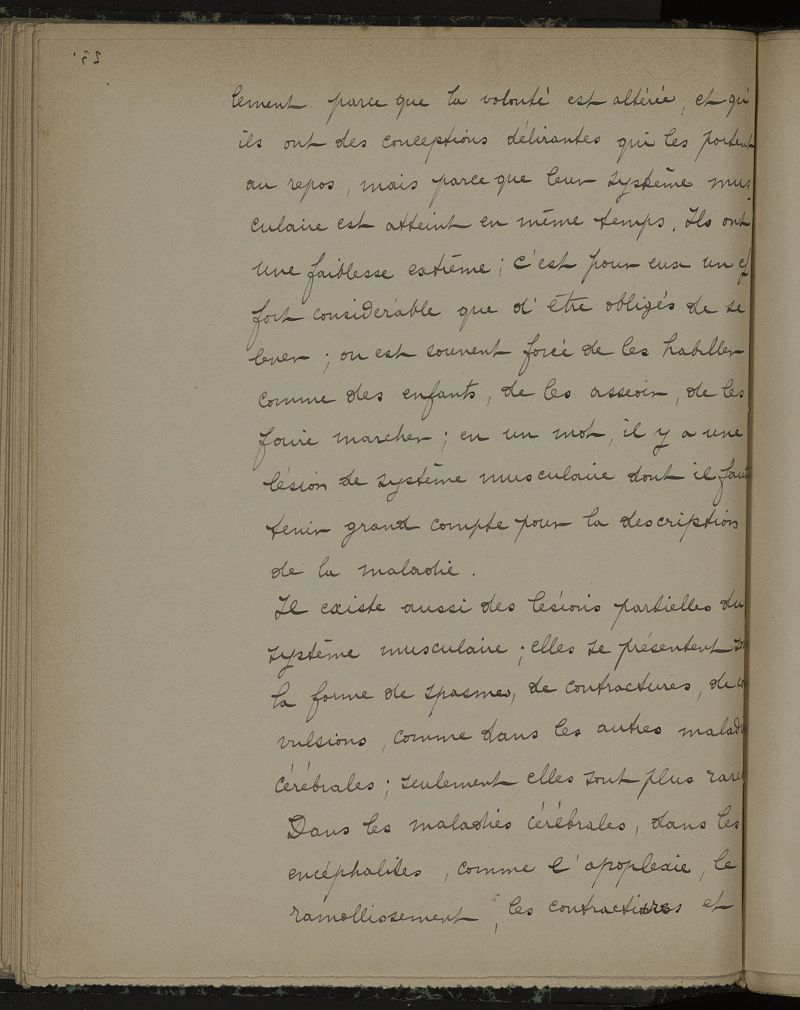 lement parce que la volonté est altérée, et qu'
ils ont des conceptions délirantes qui les portent
au repos, mais parce que leur système mus
culaire est atteint en même temps. Ils ont
une faiblesse extrême ; c'est pour eux un ef
fort considérable que d'être obligés de se
lever ; on est souvent forcé de les habiller
comme des enfants, de les asseoir, de les
faire marcher ; en un mot, il y a une
lésion de système musculaire dont il faut
tenir grand compte pour la description
de la maladie.
Il existe aussi des lésions partielles du
système musculaire ; elles se présentent
la forme de spasmes, de contractures, de co
vulsions, comme dans les autres maladi
cérébrales ; seulement elles sont plus rares
Dans les maladies cérébrales, dans les
encéphalites, comme l'apoplexie, le
ramollissement, les contractures et